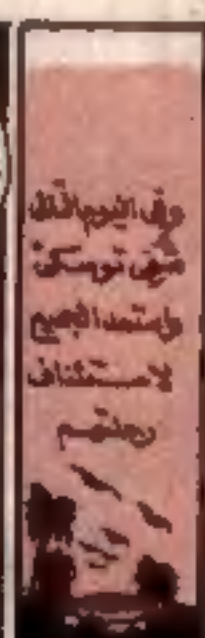 وفى اليوم التالى
شفى توسكى
واستعد الجميع
لاستئناف
رحلتهم